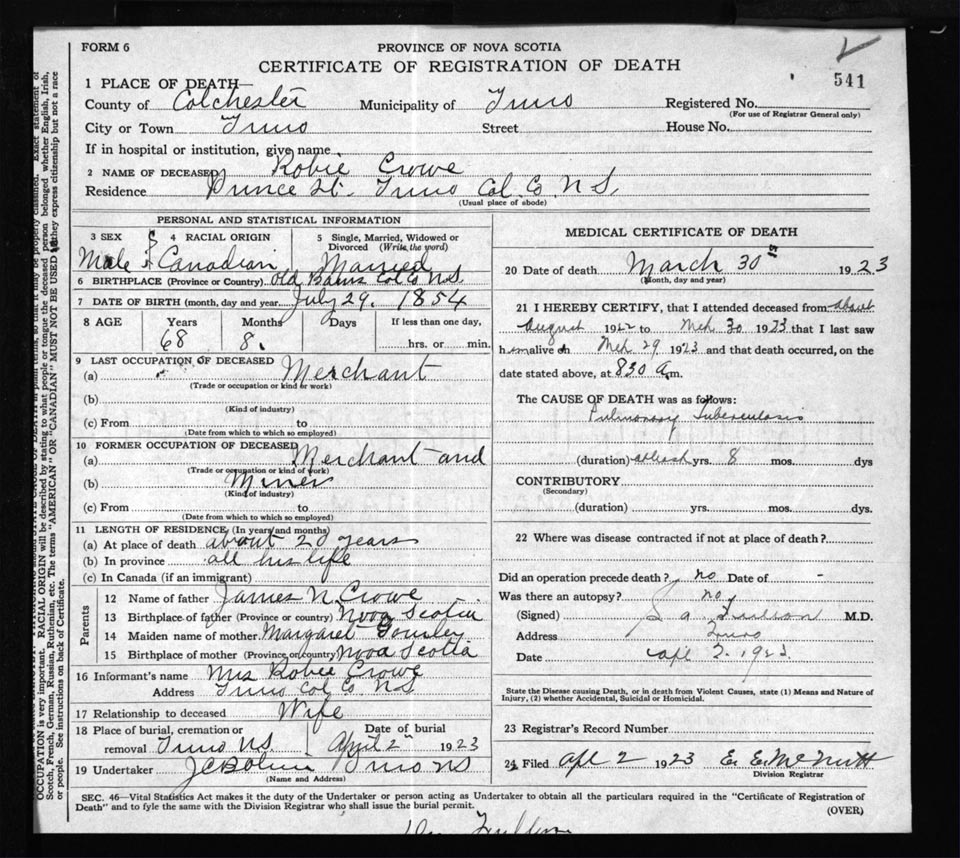 FORM 6
PROVINCE OF NOVA SCOTIA
CERTIFICATE OF REGISTRATION OF DEATH
541
1 PLACE OF DEATH—
County of Colchester Municipality of Truro Registered No.
(For use of Registrar General only)
City or Town Truro Street House No.
If in hospital or institution, give name
2 NAME OF DECEASED Robie Crowe
Residence Prince St. Truro Col. Co. N S.
(Usual place of abode)
PERSONAL AND STATISTICAL INFORMATION
3 SEX 4 RACIAL ORIGIN 5 Single, Married, Widowed or Divorced (Write the word)
Male Canadian Married
6 BIRTHPLACE (Province or Country) Old Barns Col Co N.S.
7 DATE OF BIRTH (month, day and year) July 29. 1854
8 AGE Years Months Days If less than one day,
68 8. hrs. or min.
9 LAST OCCUPATION OF DECEASED
(a) Merchant
(Trade or occupation or kind of work)
(b)
(Kind of industry)
(c) From to
(Date from which to which so employed)
10 FORMER OCCUPATION OF DECEASED
(a) Merchant and
(Trade or occupation or kind of work)
(b) Miner
(Kind of industry)
(c) From to
(Date from which to which so employed)
11 LENGTH OF RESIDENCE (In years and months)
(a) At place of death about 20 years
(b) In province all his life
(c) In Canada (if an immigrant)
Parents
12 Name of father James N. Crowe
13 Birthplace of father (Province or country) Nova Scotia
14 Maiden name of mother Margaret
15 Birthplace of mother (Province or country) Nova Scotia
16 Informant's name Mrs Robie Crowe
Address Truro Col. Co N S
17 Relationship to deceased Wife
18 Place of burial, cremation or removal Truro N.S. Date of burial April 2nd 1923
19 Undertaker Truro N S
(Name and Address)
MEDICAL CERTIFICATE OF DEATH
20 Date of death March 30th 1923
(Month, day and year)
21 I HEREBY CERTIFY, that I attended deceased from about
August 1922 to Mch 30 1923 that I last saw
him alive on Mch 29 1923 and that death occurred, on the
date stated above, at 830 a.m.
The CAUSE OF DEATH was as follows:
Pulmonary Tuberculosis
(duration) yrs. 8 mos. dys
CONTRIBUTORY
(Secondary)
(duration) yrs. mos. dys.
22 Where was disease contracted if not at place of death?
Did an operation precede death? no Date of -
Was there an autopsy? no
(Signed) M.D.
Address Truro
Date Apl 2. 1923.
State the Disease causing Death, or in death from Violent Causes, state (1) Means and Nature of Injury, (2) whether Accidental, Suicidal or Homicidal.
23 Registrar's Record Number
24 Filed Apl 2 1923 E. E. McNutt
Division Registrar
SEC. 46—Vital Statistics Act makes it duty of the Undertaker or person acting as Undertaker to obtain all the particulars required in the "Certificate of Registration of
Death" and to fyle the same with the Division Registrar who shall issue the burial permit.
(OVER)
OCCUPATION is very important. RACIAL ORIGIN will be described by stating to what people or tongue the deceased person belonged whether English, Irish,
Scotch, French, German, Russian, Ruthenian, etc. The terms "AMERICAN" OR "CANADIAN" MUST NOT BE USED as they express citizenship but not a race
or people. See instructions on back of Certificate.